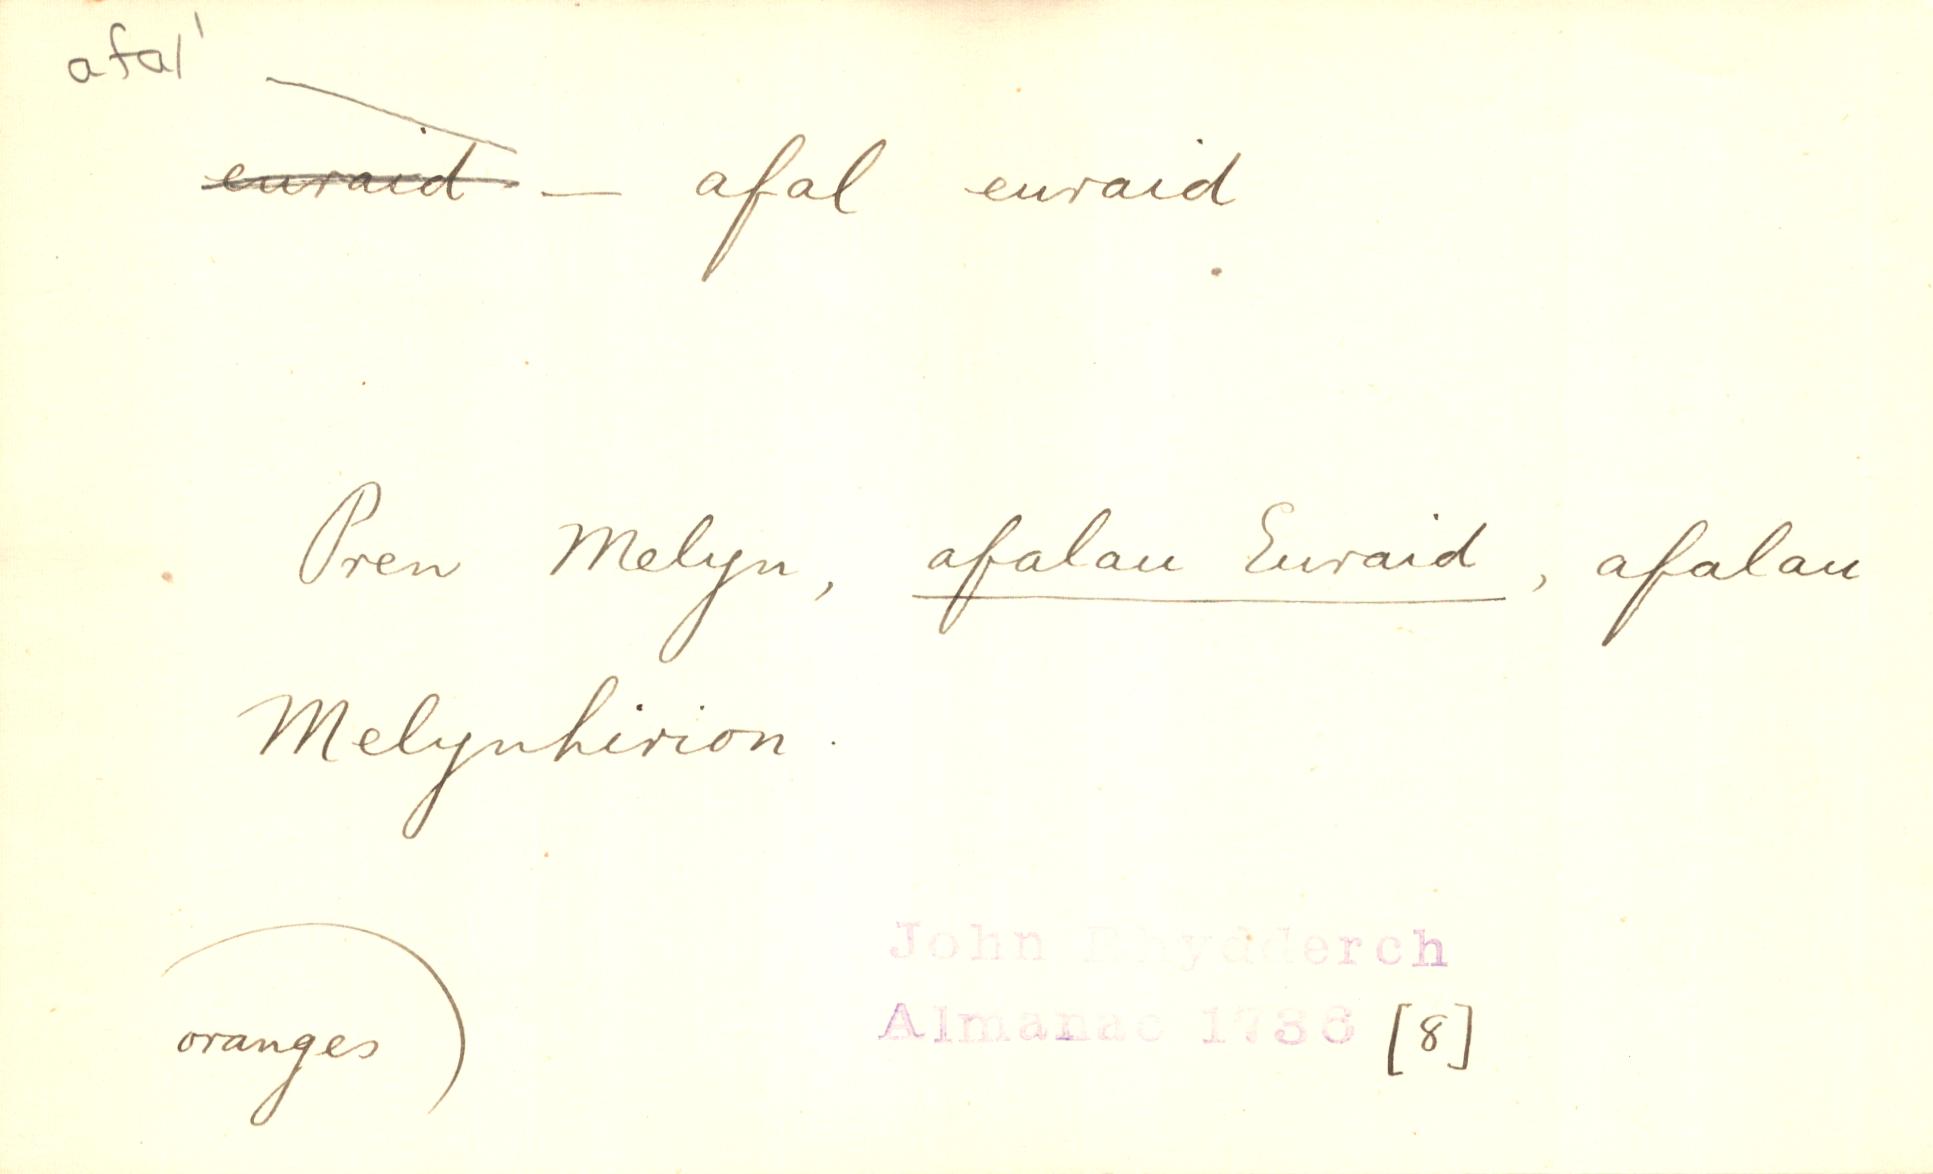 afal'
euraid — afal euraid
Pren Melyn, afalau Euraid, afalau
Melynhirion.
oranges
John Rhydderch
Almanac 1736 [8]